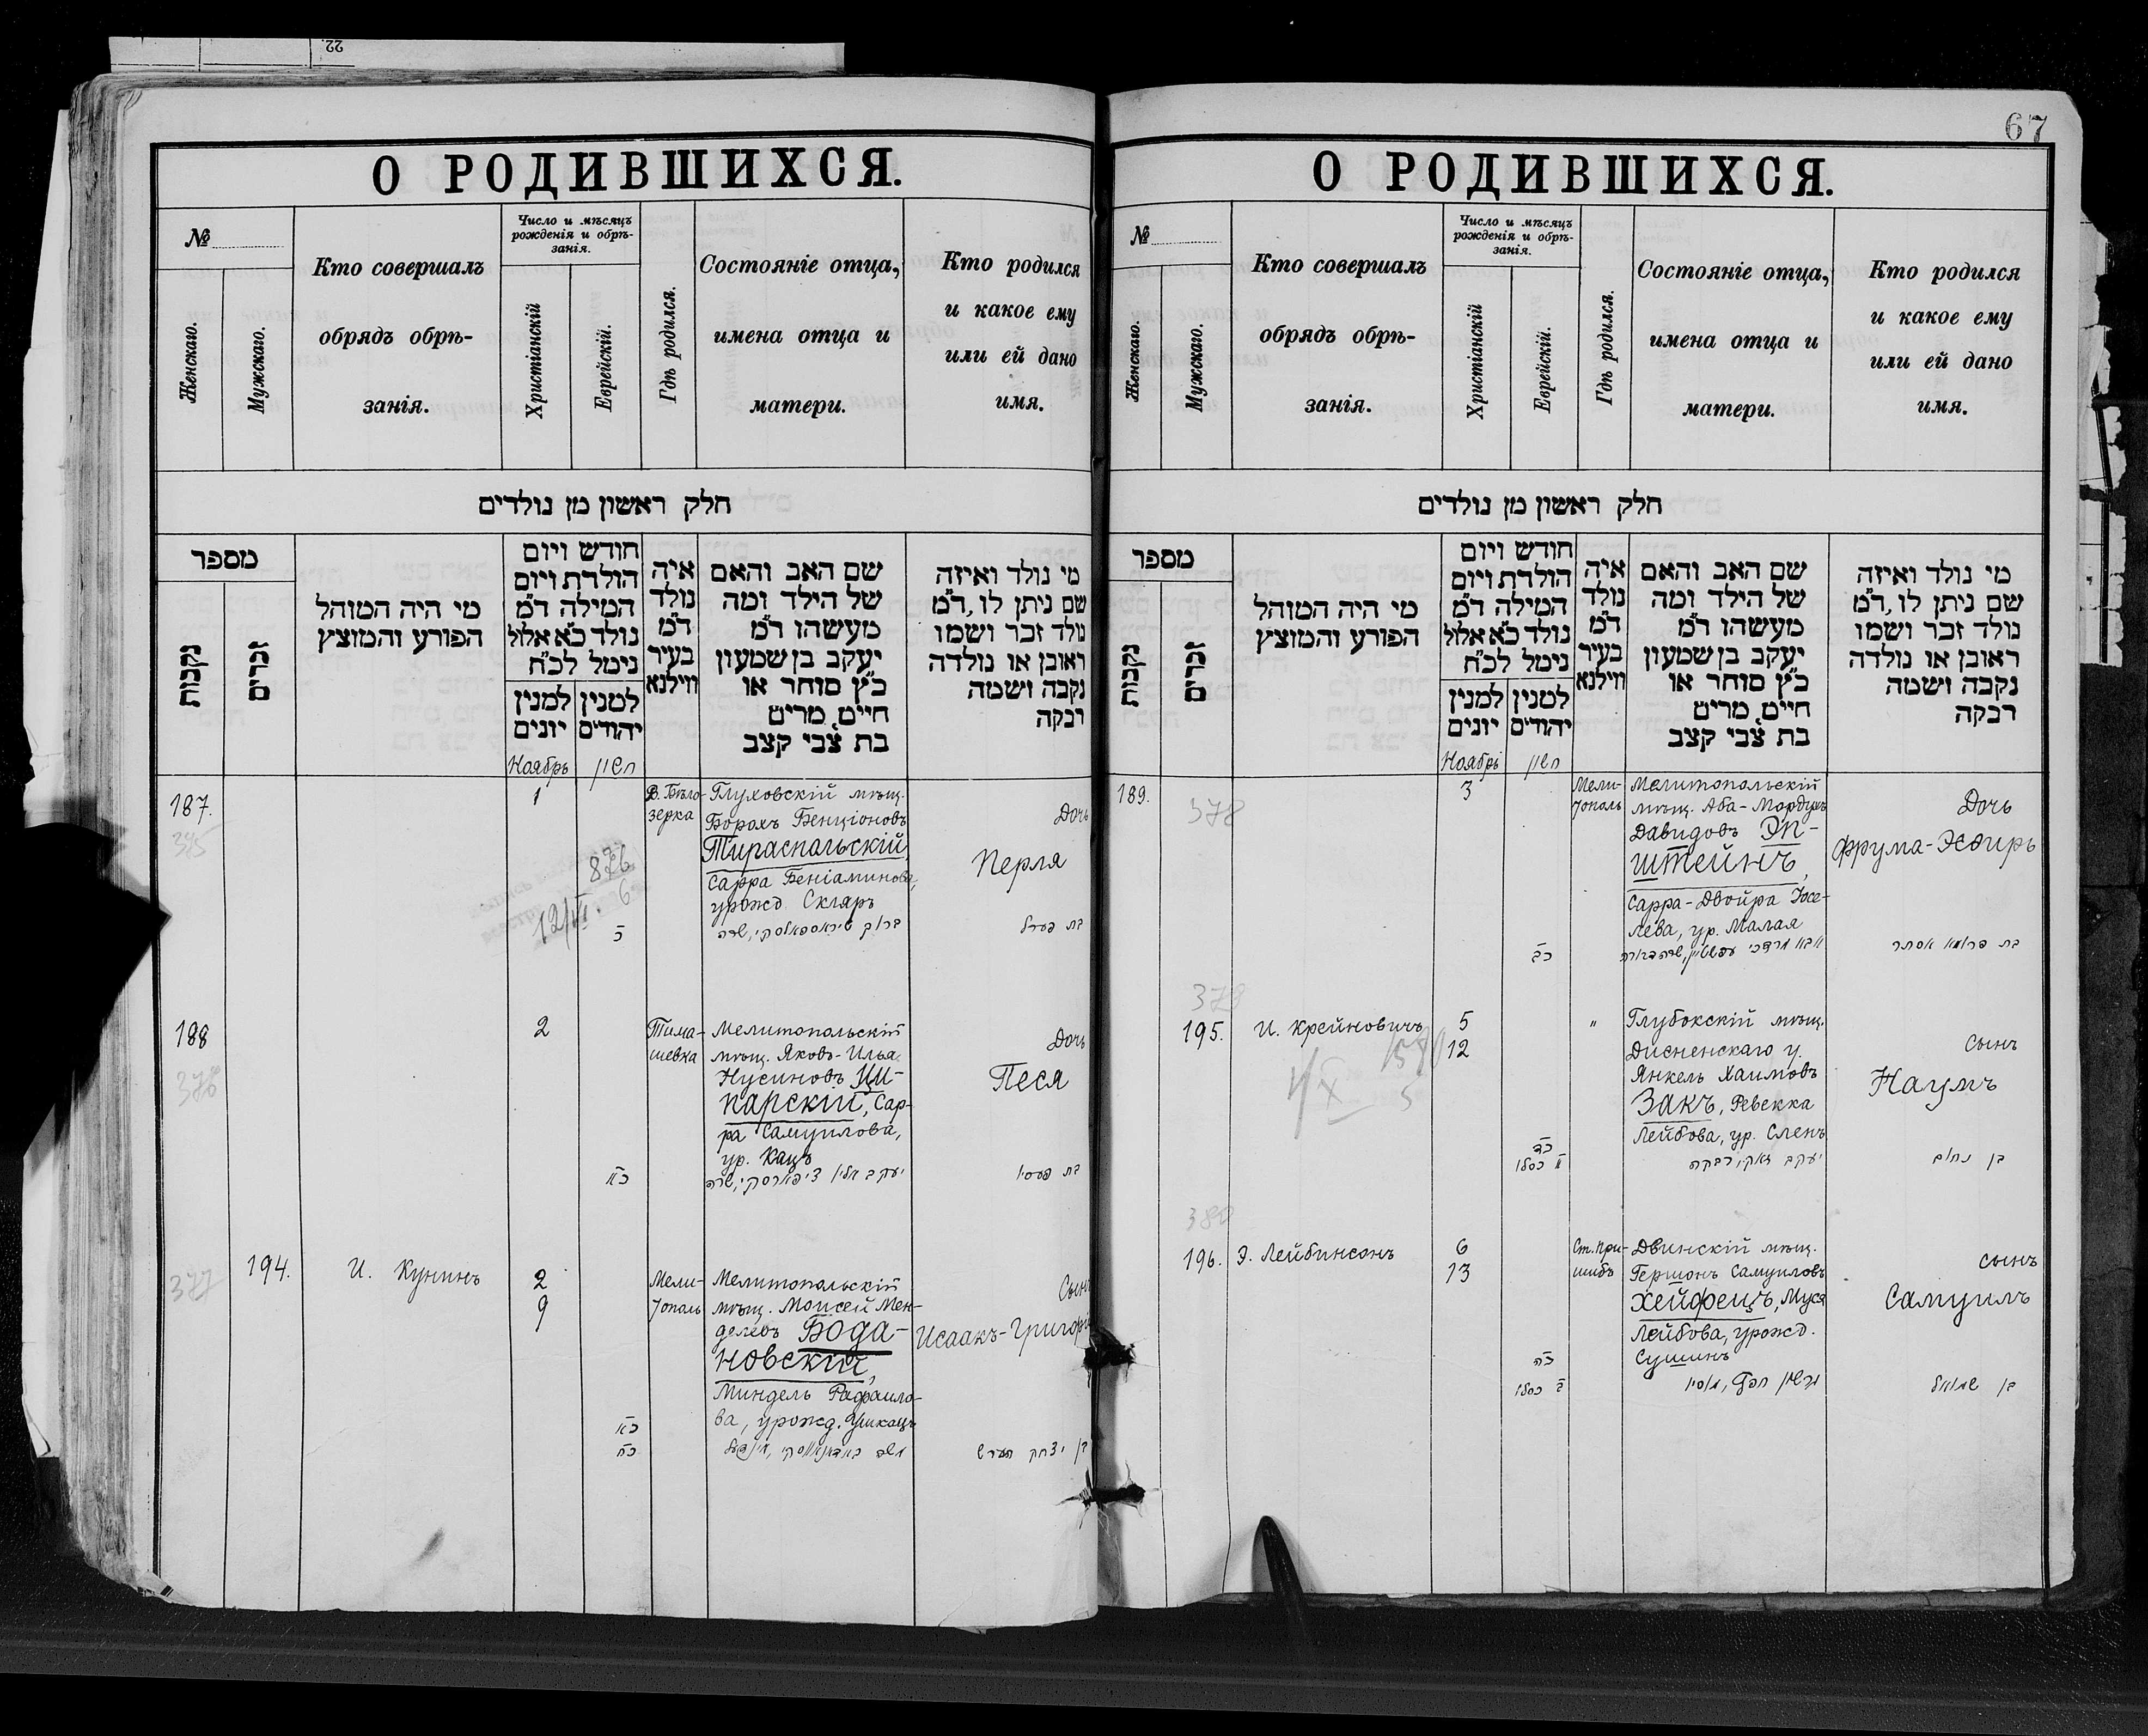 22.
О РОДИВШИХСЯ.
№
Женскаго.
Мужскаго.
Кто совершалъ
обрядъ обрѣ-
занія.
Число и мѣсяцъ
рожденія и обрѣ-
занія.
Христіанскій
Еврейскій.
Гдѣ родился.
Состояніе отца,
имена отца и
матери.
Кто родился
и какое ему
или ей дано
имя.
חלק ראשון מן נולדים
מספר
נקבות
זכרים
מי היה המוהל
הפורע והמוצץ
חודש ויום
הולדת ויום
המילה ד״מ
נולד כ״א אלול
נימל לכ״ח
למנין
יונים
למנין
יהודים
איה
נולד
ד״מ
בעיר
ווילנא
שם האב והאם
של הילד ומה
מעשהו ד״מ
יעקב בן שמעון
כ״ץ סוחר או
חייט, מרים
בת צבי קצב
מי נולד ואיזה
שם ניתן לו, ד״מ
נולד זכר ושמו
ראובן או נולדה
נקבה ושמה
רבקה
Ноябрь
חשון
187.
375
1
876
6
כ
Д. Бѣло-
зерка
Глуховскій мѣщ.
Борохъ Бенціоновъ
Тираспольскій,
Сарра Беніаминова,
урожд. Скляръ
ברוך טיראספאלסקי, שרה
Дочь
Перля
בת פערל
188
376
2
כא
Тима-
шевка
Мелитопольскій
мѣщ. Яковъ-Илья
Нусиновъ Ци-
парскій, Сар-
ра Самуилова,
ур. Кацъ
יעקב אלי׳ ציפארסקי, שרה
Дочь
Песя
בת פעסי
377
194.
И. Кунинъ
2
9
כא
כח
Мели-
тополь
Мелитопольскій
мѣщ. Моисей Мен-
делевъ Бода-
новскій,
Миндель Рафаило-
ва, урожд.
משה באדאנאווסקי, מינדעל
Сынъ
Исаакъ-Григорій
בן יצחק הערש
67
О РОДИВШИХСЯ.
№
Женскаго.
Мужскаго.
Кто совершалъ
обрядъ обрѣ-
занія.
Число и мѣсяцъ
рожденія и обрѣ-
занія.
Христіанскій
Еврейскій.
Гдѣ родился.
Состояніе отца,
имена отца и
матери.
Кто родился
и какое ему
или ей дано
имя.
חלק ראשון מן נולדים
מספר
נקבות
זכרים
מי היה המוהל
הפורע והמוצץ
חודש ויום
הולדת ויום
המילה ד״מ
נולד כ״א אלול
נימל לכ״ח
למנין
יונים
למנין
יהודים
איה
נולד
ד״מ
בעיר
ווילנא
שם האב והאם
של הילד ומה
מעשהו ד״מ
יעקב בן שמעון
כ״ץ סוחר או
חייט, מרים
בת צבי קצב
מי נולד ואיזה
שם ניתן לו, ד״מ
נולד זכר ושמו
ראובן או נולדה
נקבה ושמה
רבקה
Ноябрь
חשון
189.
378
3
כב
Мели-
тополь
Мелитопольскій
мѣщ. Аба-Мордухъ
Давидовъ Эп-
штейнъ,
Сарра-Двойра Іосе-
лева, ур. Малая
אבא מרדכי עפשטיין, שרה דבורה
Дочь
Фрума-Эсѳирь
בת פרומא אסתר
379
195.
И. Крейновичъ
5
12
כד
א כסלו
"
Глубокскій мѣщ.
Дисненскаго у.
Янкель Хаимовъ
Закъ, Ревекка
Лейбова, ур. Сленъ
יעקב זאק, רבקה
Сынъ
Наумъ
בן נחום
380
196.
Э. Лейбинсонъ
6
13
כה
ב כסלו
Ст. При-
шибъ
Двинскій мѣщ.
Гершонъ Самуиловъ
Хейфецъ, Муся
Лейбова, урожд.
Сушинъ
גרשון חפץ, מוסי
Сынъ
Самуилъ
בן שמואל